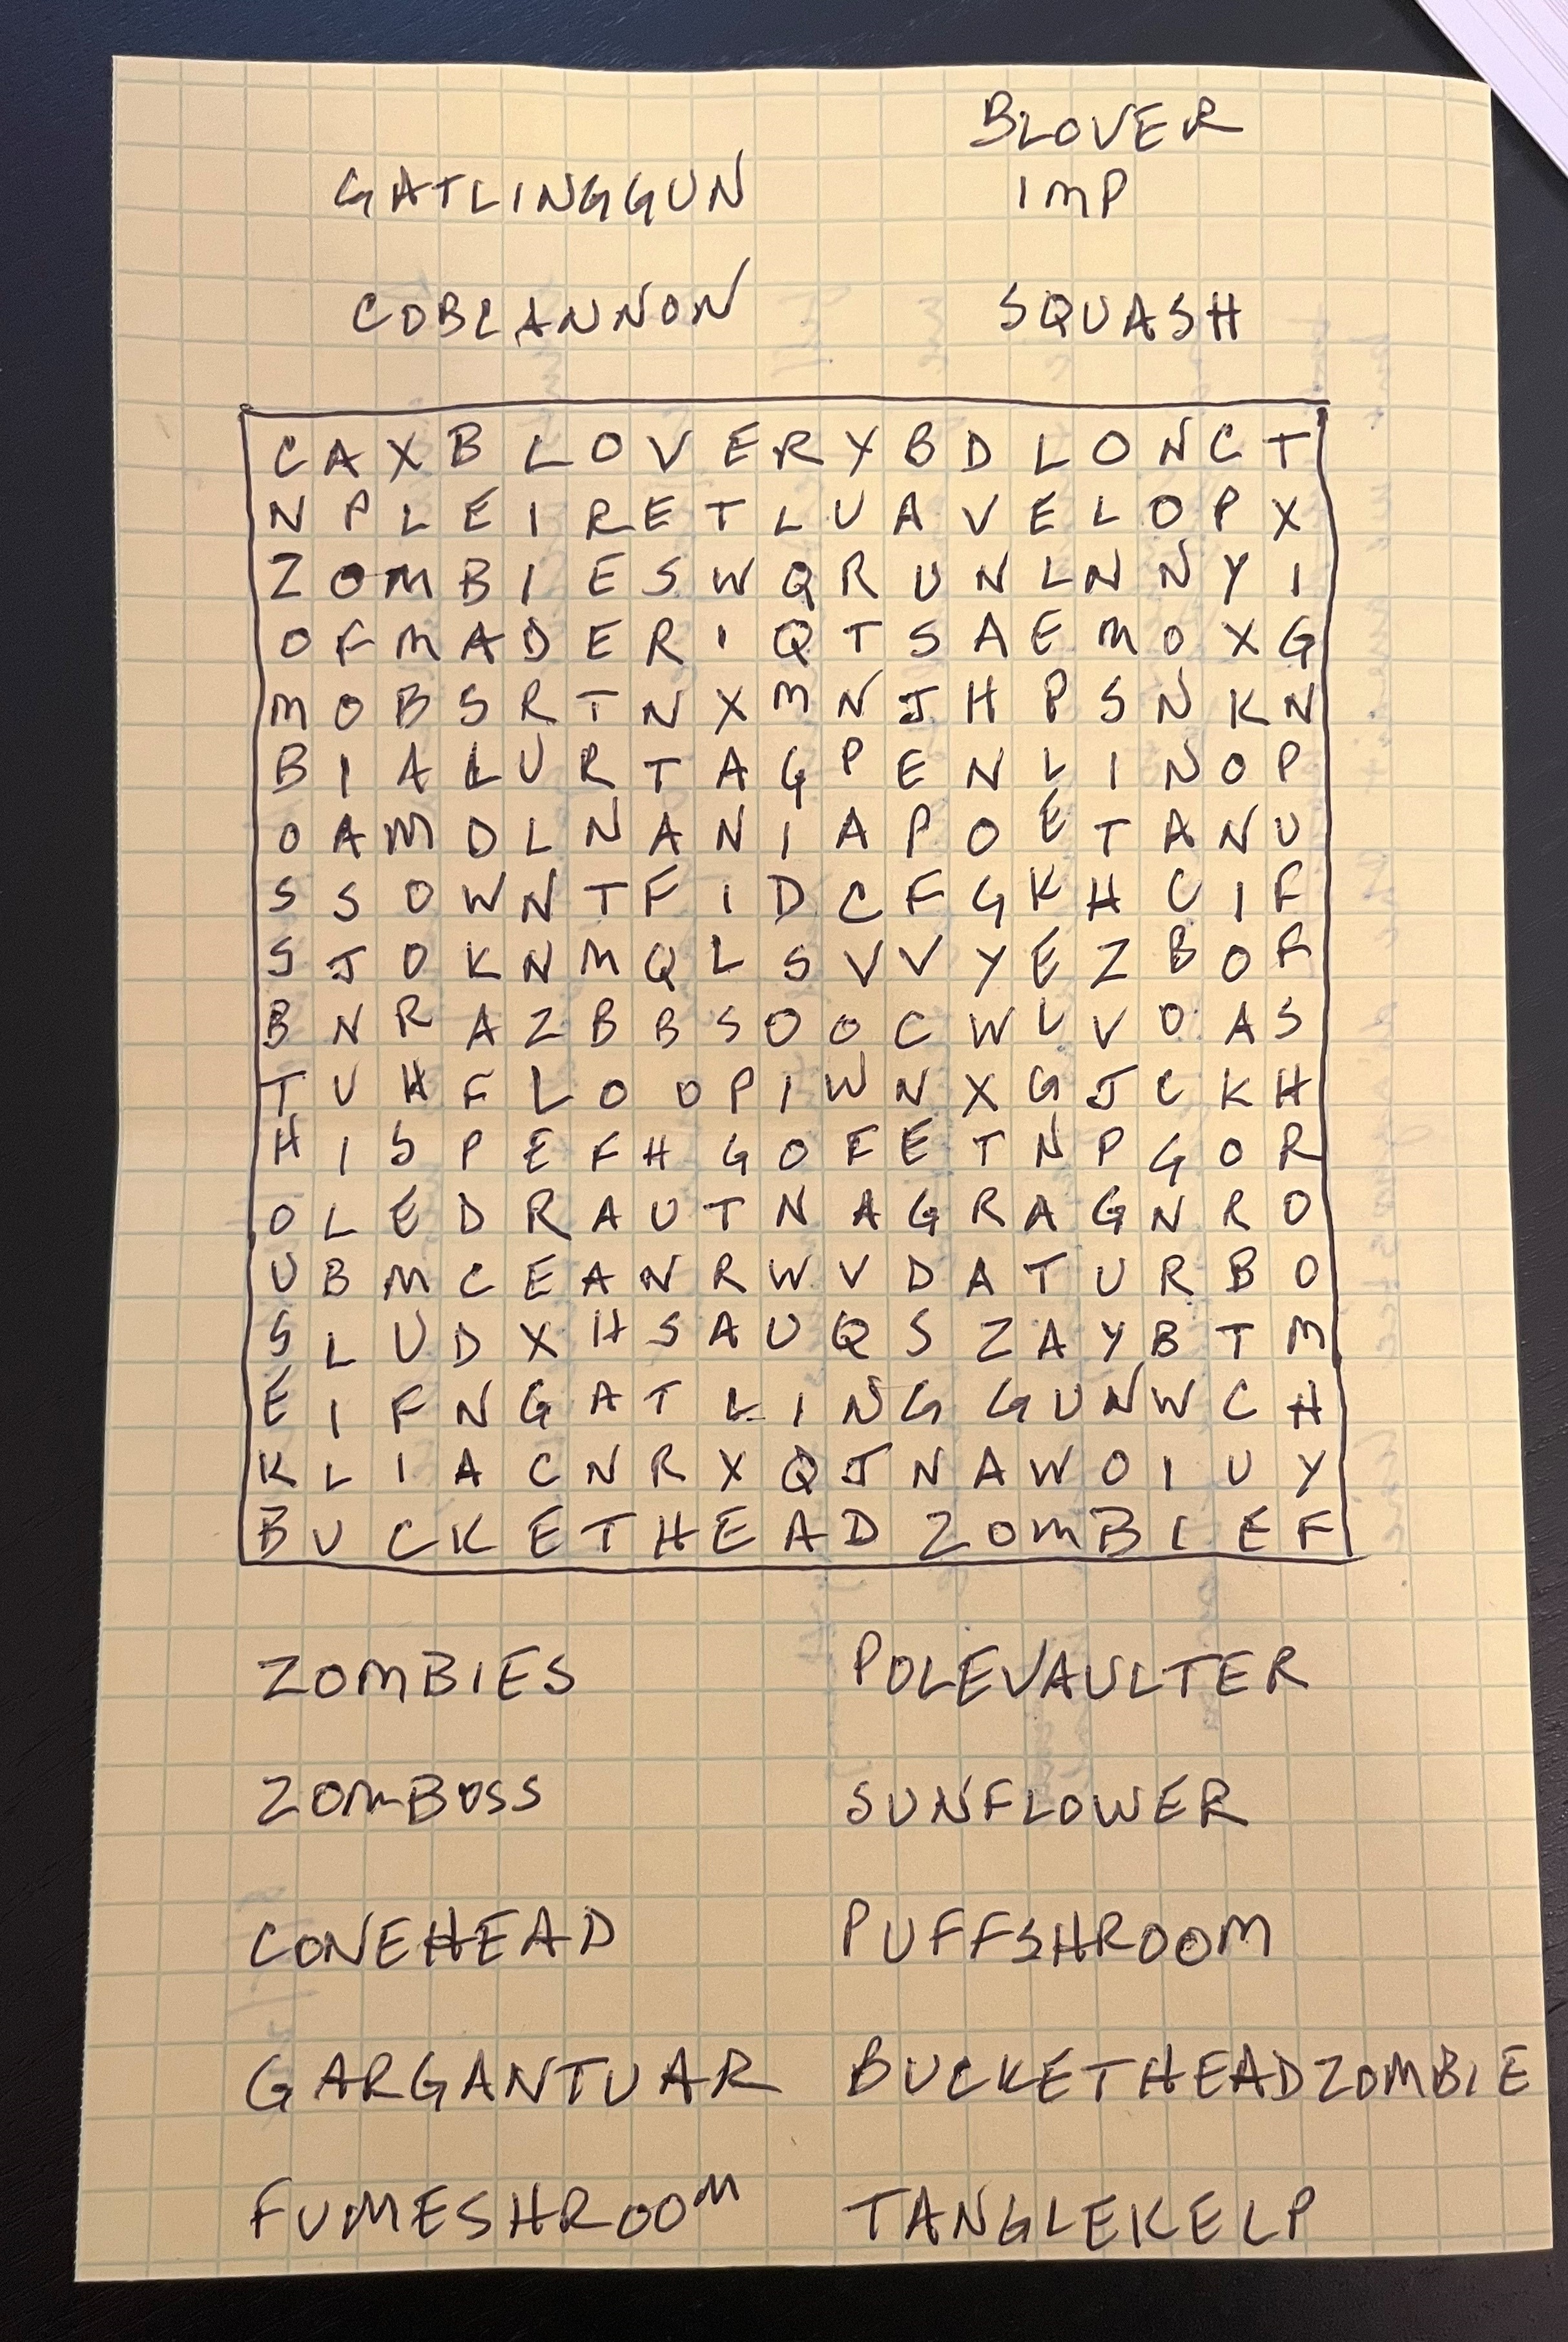 BLOVER
GATLINGGUN IMP
COBCANNON SQUASH
C A X B L O V E R Y B D L O N C T
N P L E I R E T L U A V E L O P X
Z O M B I E S W Q R U N L N N Y I
O F M A D E R I Q T S A E M O X G
M O B S R T N X M N J H P S N K N
B I A L U R T A G P E N L I N O P
O A M D L N A N I A P O E T A N U
S S O W N T F I D C F G K H C I F
S J O K N M Q L S V V Y E Z B O F
B N R A Z B B S O O C W L V O A S
T U H F L O O P I W N X G J C K H
H I S P E F H G O F E T N P G O R
O L E D R A U T N A G R A G N R O
U B M C E A N R W V D A T U R B O
S L U D X H S A U Q S Z A Y B T M
E I F N G A T L I N G G U N W C H
K L I A C N R X Q J N A W O I U Y
B U C K E T H E A D Z O M B I E F
ZOMBIES POLEVAULTER
ZOMBOSS SUNFLOWER
CONEHEAD PUFFSHROOM
GARGANTUAR BUCKETHEADZOMBIE
FUMESHROOM TANGLEKELP